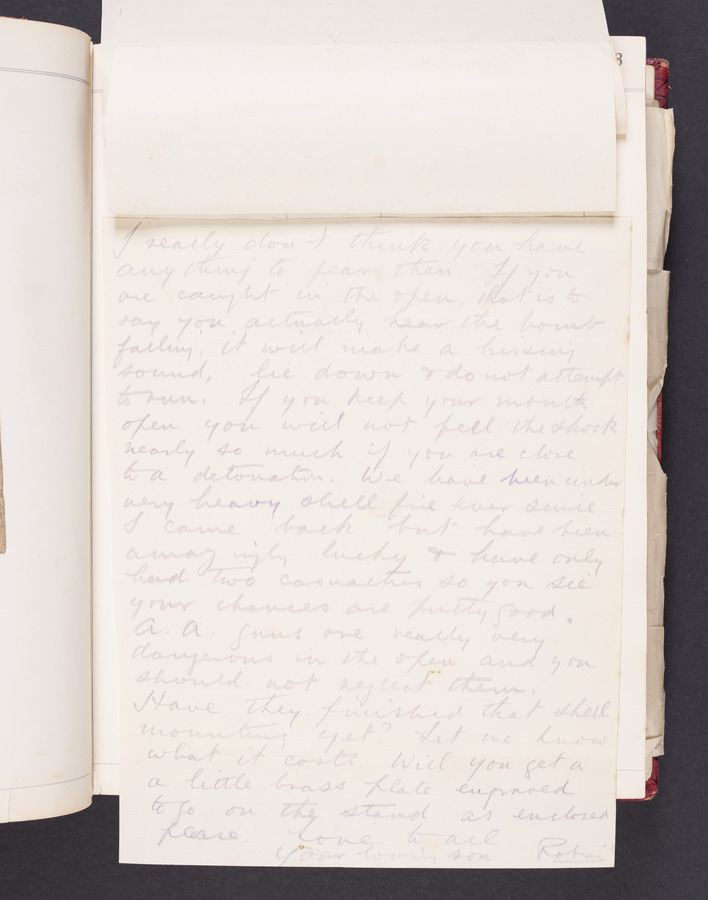 8
I really don't think you have
anything to fear then. If you
are caught in the open, that is to
say you actually hear the bomb
falling, it will make a hissing
sound, lie down & do not attempt
to run. If you keep your mouth
open you will not feel the shock
nearly so much if you are close
to a detonation. We have been under
very heavy shell fire ever since
I came back but have been
amazingly lucky & have only
had two casualties so you see
your chances are pretty good.
A. A. guns are really very
dangerous in the open and you
should not neglect them.
Have they finished that shell
mounting yet? Let me know
what it costs. Will you get a
a little brass plate engraved
to go on the stand as enclosed
please. Love to all
Your loving son Robin